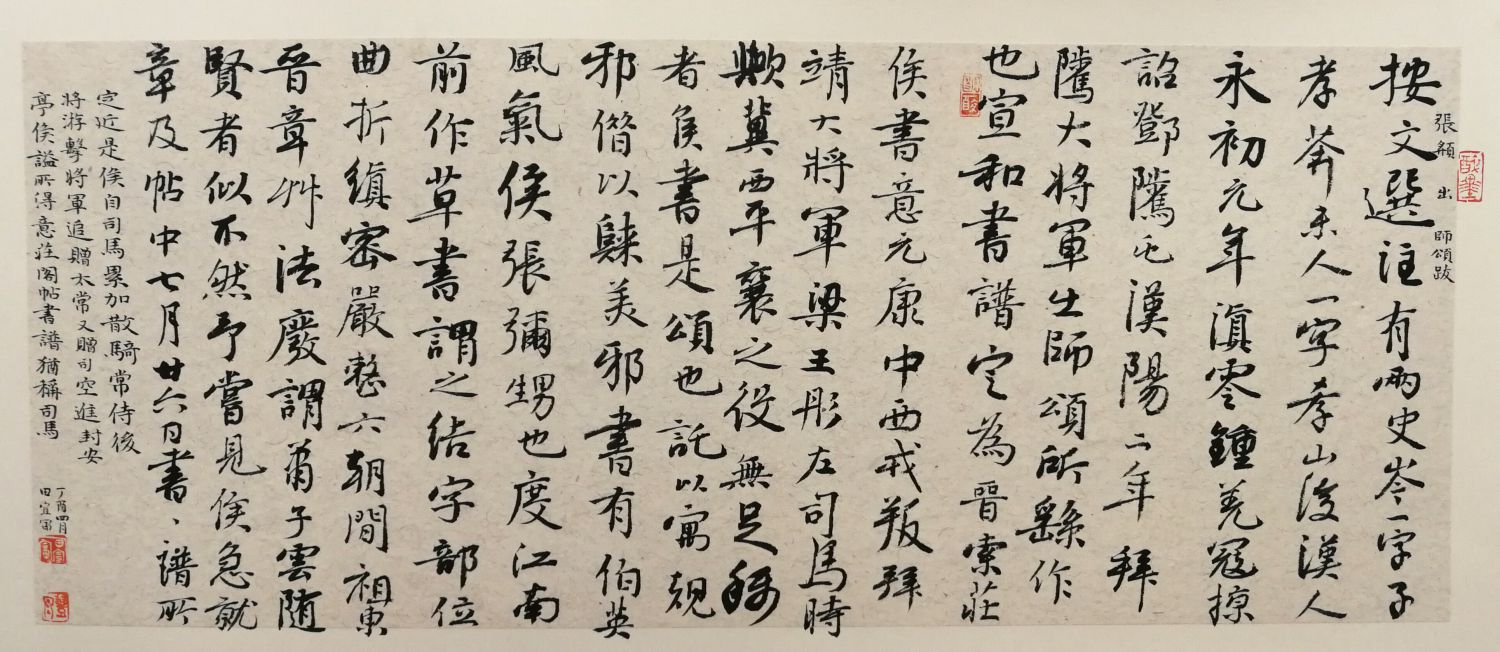 按文選注有兩史岑一字子
張顙出師頌跋
孝莽末人一字孝山後漢人
永初元年滇零鍾羌寇掠
詔鄧騭屯漢陽二年拜
騭大將軍出師頌所繇作
也宣和書譜定為晉索莊
侯書意元康中西戎叛拜
靖大將軍梁王彤左司馬時
歟冀西平襄之役無足稱
者侯書是頌也託以寓覬
邪偕以騄美邪書有伯英
風氣侯張彌甥也度江南
前作草書謂之結字部位
曲折縝密嚴整六朝間祖東
晉章艸法廢謂蕭子雲隨
賢者似不然予嘗見侯急就
章及帖中七月廿六日書、譜所
定近是侯自司馬累加散騎常侍後
將游擊將軍追贈太常又贈司空進封安
亭侯謚所得意莊閣帖書譜猶稱司馬
丁酉四月
田宜富